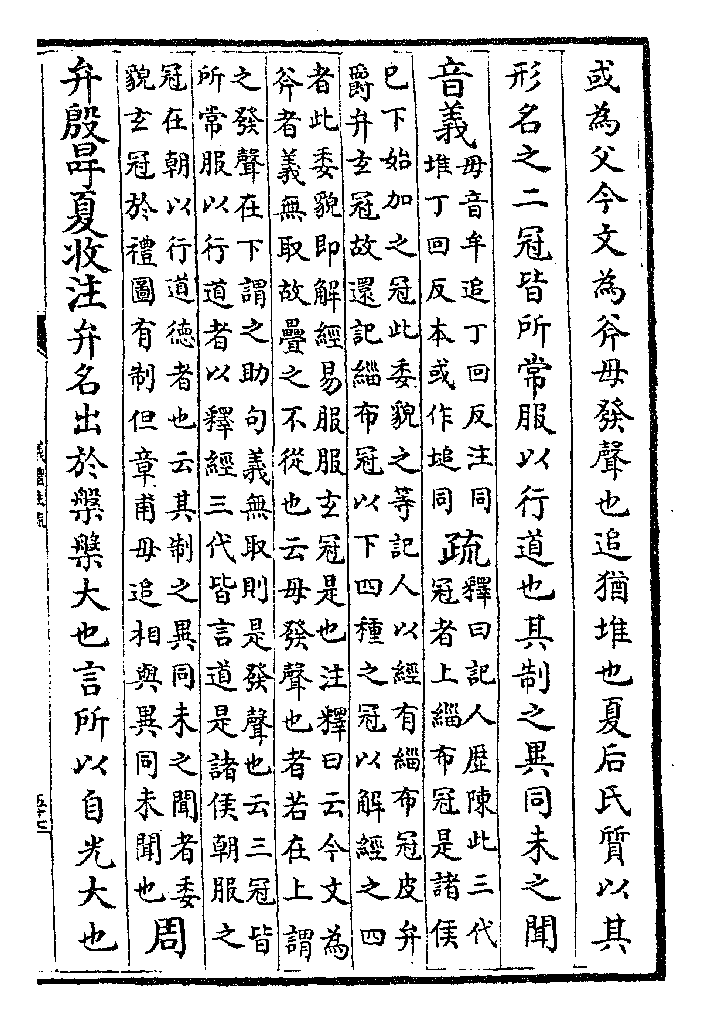 或為父今文為斧毋發聲也追猶堆也夏后氏質以其
形名之二冠皆所常服以行道也其制之異同未之聞
音義毋音牟追丁回反注同
堆丁回反本或作塠同
疏釋曰記人歴陳此三代
冠者上緇布冠是諸侯
巳下始加之冠此委貌之等記人以經有緇布冠皮弁
爵弁玄冠故還記緇布冠以下四種之冠以解經之四
者此委貌即解經易服服玄冠是也注釋曰云今文為
斧者義無取故疊之不從也云毋發聲也者若在上謂
之發聲在下謂之助句義無取則是發聲也云三冠皆
所常服以行道者以釋經三代皆言道是諸侯朝服之
冠在朝以行道德者也云其制之異同未之聞者委
貌玄冠於禮圖有制但章甫毋追相與異同未聞也
周
弁殷冔夏收注弁名出於槃槃大也言所以自光大也